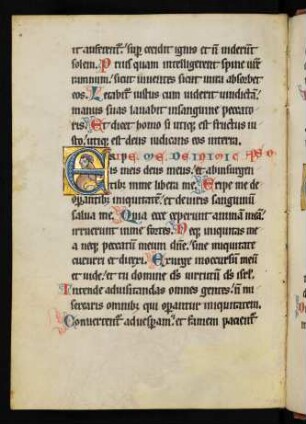 it auferent̄. sup̄ cecidit ignis et n̄ viderūt
solem. Prius quam intelligerent spine vr̄e
ramnum. sicut viventes sicut in ira absorbet
eos. Letabit̄ iustus cum viderit vindictā.
manus suas lavabit in sanguine peccato
ris. Et dicet homo si utiq; est fructus iu
sto. utiq; est deus iudicans eos in terra.
Eripe me de inimic
is meis deus meus. et ab insurgen
tibus in me libera me. Eripe me de
operantib; iniquitatem. et de viris sanguinū
salva me. Quia ecce ceperunt animā meā.
irruerunt in me fortes. Neq; iniquitas me
a neq; peccatū meum dn̄e. sine iniquitate
cucurri et direxi. Exurge in occursū meū
et vide. et tu domine ds̄ virtutū ds̄ isrl̄.
Intende ad visitandas omnes gentes. n̄ mi
serearis omnib; qui operant̄ iniquitatem.
Convertent̄ ad vesperam. et famem patient̄